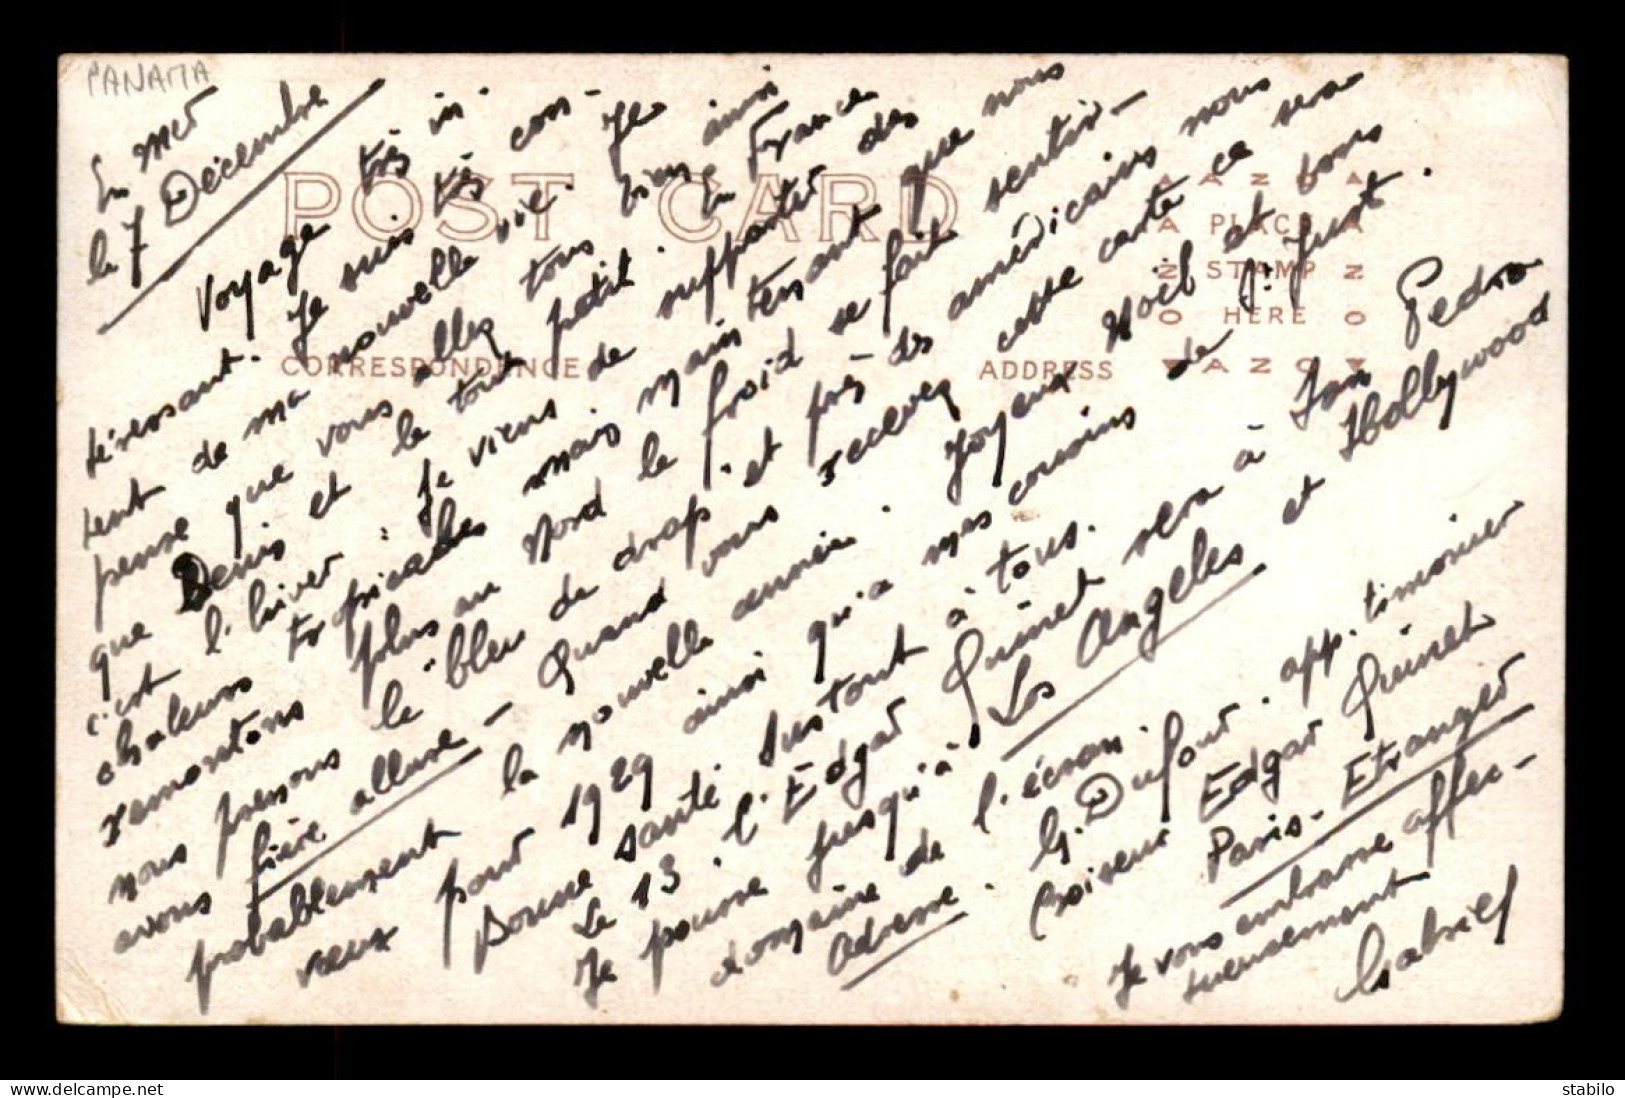 PANAMA
En mer
le 7 Décembre
Voyage très in-
téressant. Je suis très con-
tent de ma nouvelle vie. Je
pense que vous allez tous bien ainsi
que Denis et le tout petit. En France
c'est l'hiver : Je viens de supporter des
chaleurs tropicales mais maintenant que nous
remontons plus au Nord le froid se fait sentir -
nous prenons le "bleu de drap" et près des américains nous
avons fière allure - Quand vous recevrez cette carte ce sera
probablement la nouvelle année. Joyeux Noël et bons
vœux pour 1929 ainsi qu'a mes cousins de St Just.
Bonne santé surtout à tous.
Le 13. l'Edgar Quinet sera à San Pedro
Je pousse jusqu'à Los Angeles et Hollywood
domaine de l'écran.
Adresse. G. Dufour. app. timonier
Croiseur Edgar Quinet
Paris - Etranger
Je vous embrasse affec-
tueusement
Gabriel
POST CARD
CORRESPONDENCE
ADDRESS
AZO
PLACE
STAMP
HERE
https://www.delcampe.net
stabilo